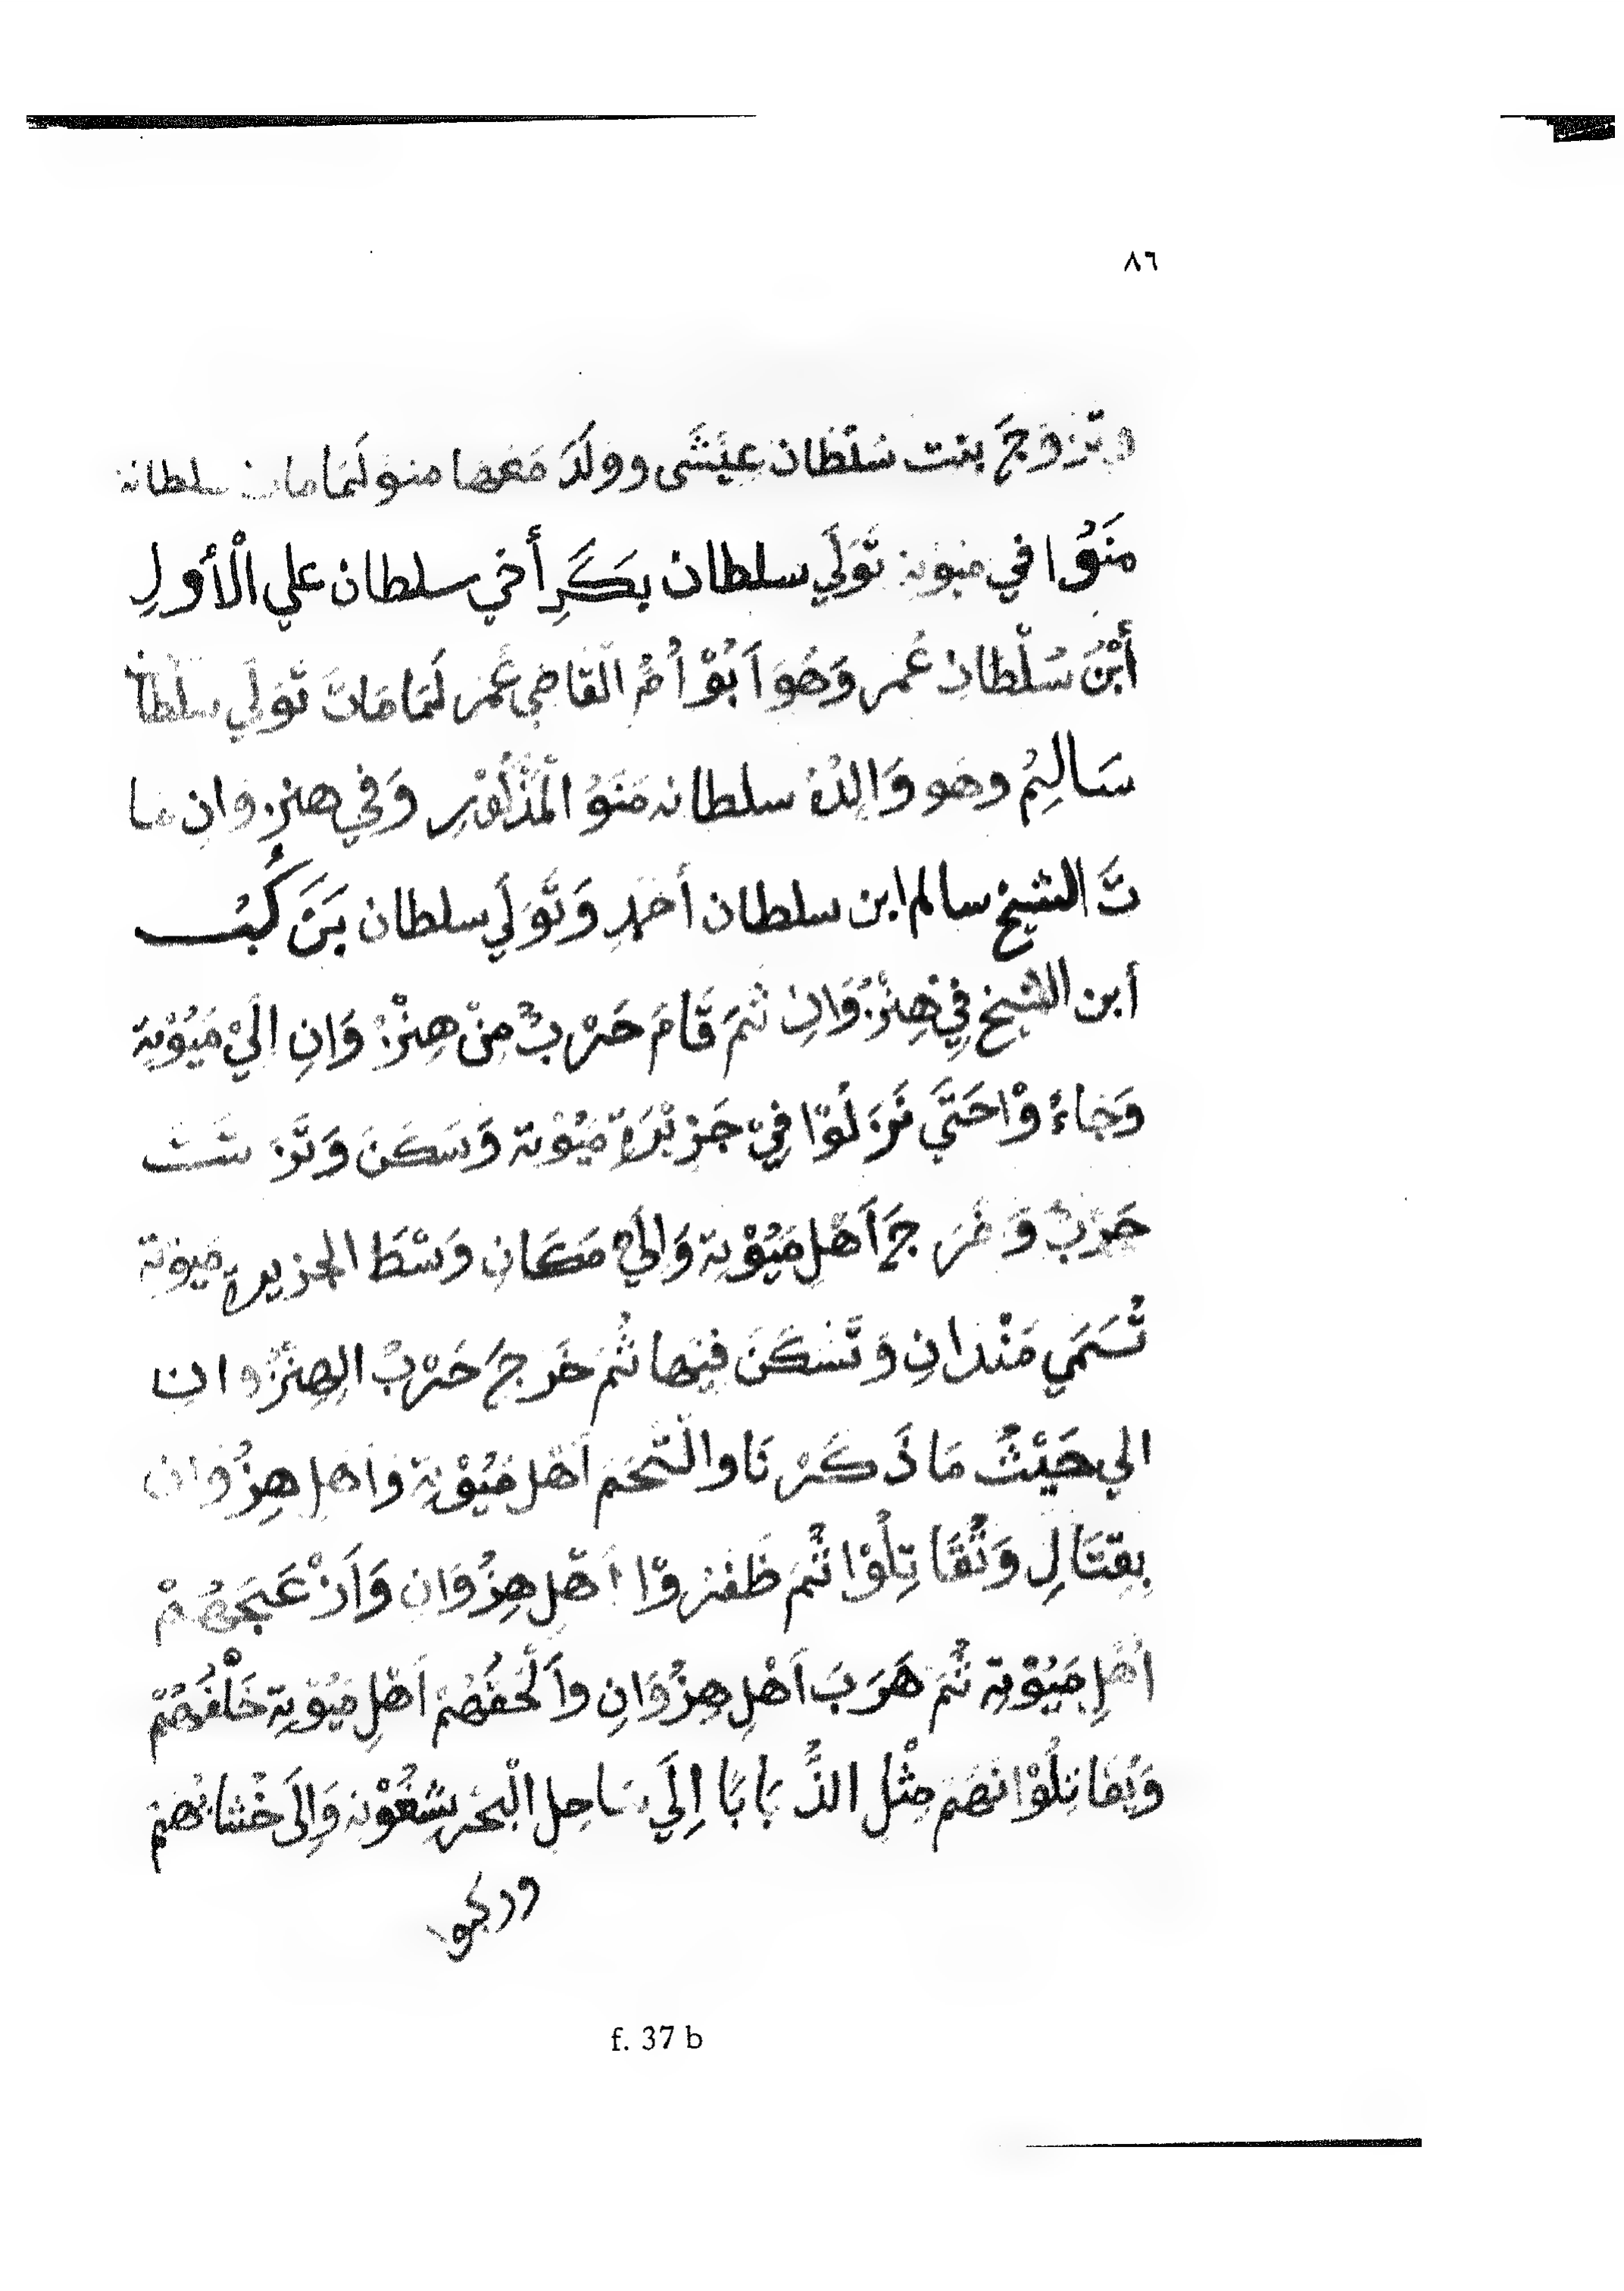 ٨٦
وتزوجَ بنت سُلْطان عِيسَى وولَدَ مَعَها منو لَمَا مات سلطانة
مَنَوُا في ميونة تَوَلَي سلطان بَكَرِ أخي سلطان علي الْأول
أبْنُ سُلْطانِ عُمر وَهُوَ اَبُوْ اُمُّ القاضي عُمَر لَمَا مَاتَ تَوَلَي سلْطاْ
سَالِمُ وهو وَالِدُهُ سلطانه مَنَوُ الْمَذْكُوْرِ وَفي هنزوان ما
تَ الشيخ سالم ابن سلطان أحمدِ وَتَوَلَي سلطان بَنَ كُبُ
أبن الشيخ فِي هِنْزُوَانِ ثُمَ قَامَ حَرْبٌ مِنْ هِنْزُوَانِ الَيْ مَيُوْتِة
وَجَاءُوْا حَتَي نَزَلُوْا فِيْ جَزِيْرَةِ مَيُوْتة وَسَكَنَ وَتَرَ تَبَتْ
حَرْبٌ وَخَرَجَ اَهْلِ مَيُوْتِة وَالَيْ مَكَانِ وَسْطَ الجزيرة مَيوتَة
تُسَمَي مَنْدَانِ وَتَسْكَنَ فِيْها ثُمَ خَرجَ حَرْبُ الهِنْزُوانِ
الي حَيْثُ مَا ذَكَرْنَا والْتَحَمَ اَهْل مَيُوْتِة وَاَهلِ هِزُوَان
بِقِتَالِ وَتُقَاتِلُوْا ثُمَ ظَفَرُوْا اَهْلِ هِزُوَانِ وَاَزْعَجَهُمْ
اَهْلِ مَيُوْتِة ثُمَ هَرَبَ اَهْلِ هِزُوَانِ واَلْحَقَهُمْ اَهْلِ مَيُوْتِة خَلْفَهُمْ
وَيُقَاتِلُوْانَهُمَ مِثْل الذُّبَابًا اِلَي سَاحِل الْبَحْر بِشُغُوْنِ وَالَى خُشْبَانِهِمْ
وركبوا
f. 37 b